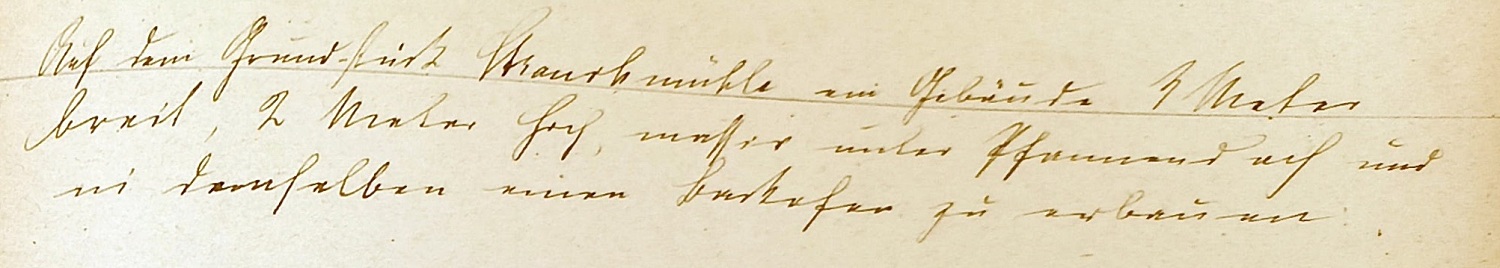 Auf dem Grundstück Strauchmühle ein Gebäude 2 Meter
breit, 2 Meter hoch, massiv unter Pfannendach und
in demselben einen Backofen zu erbauen.